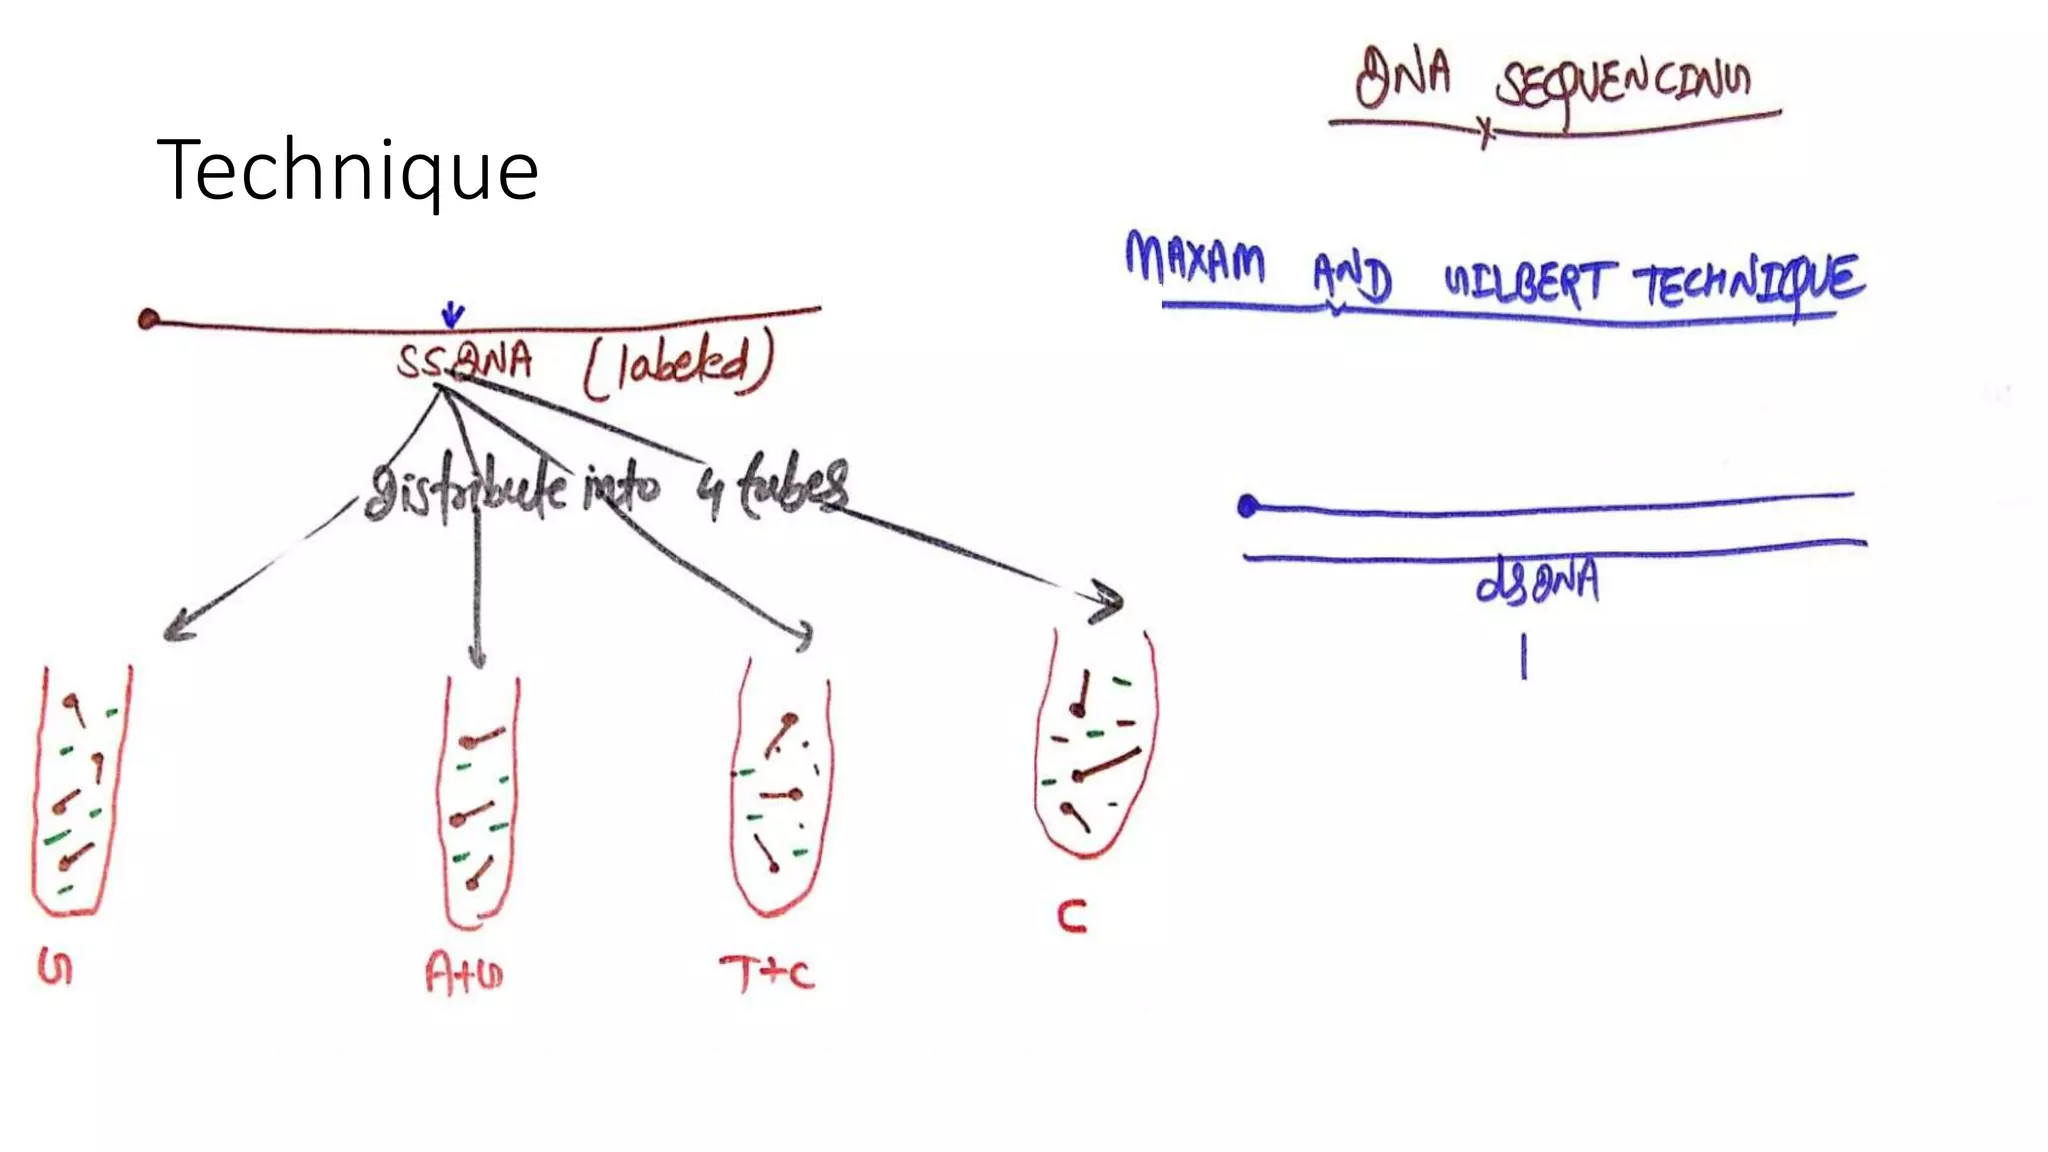 DNA SEQUENCING
Technique
MAXAM AND GILBERT TECHNIQUE
SSDNA (labeled)
distribute into 4 tubes
dsDNA
G
A+G
T+C
C